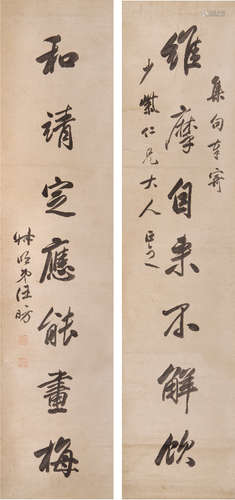 集句奉寄
維摩自來不解飲
少巖仁兄大人正之
和靖定應能畫梅
弟汪昉